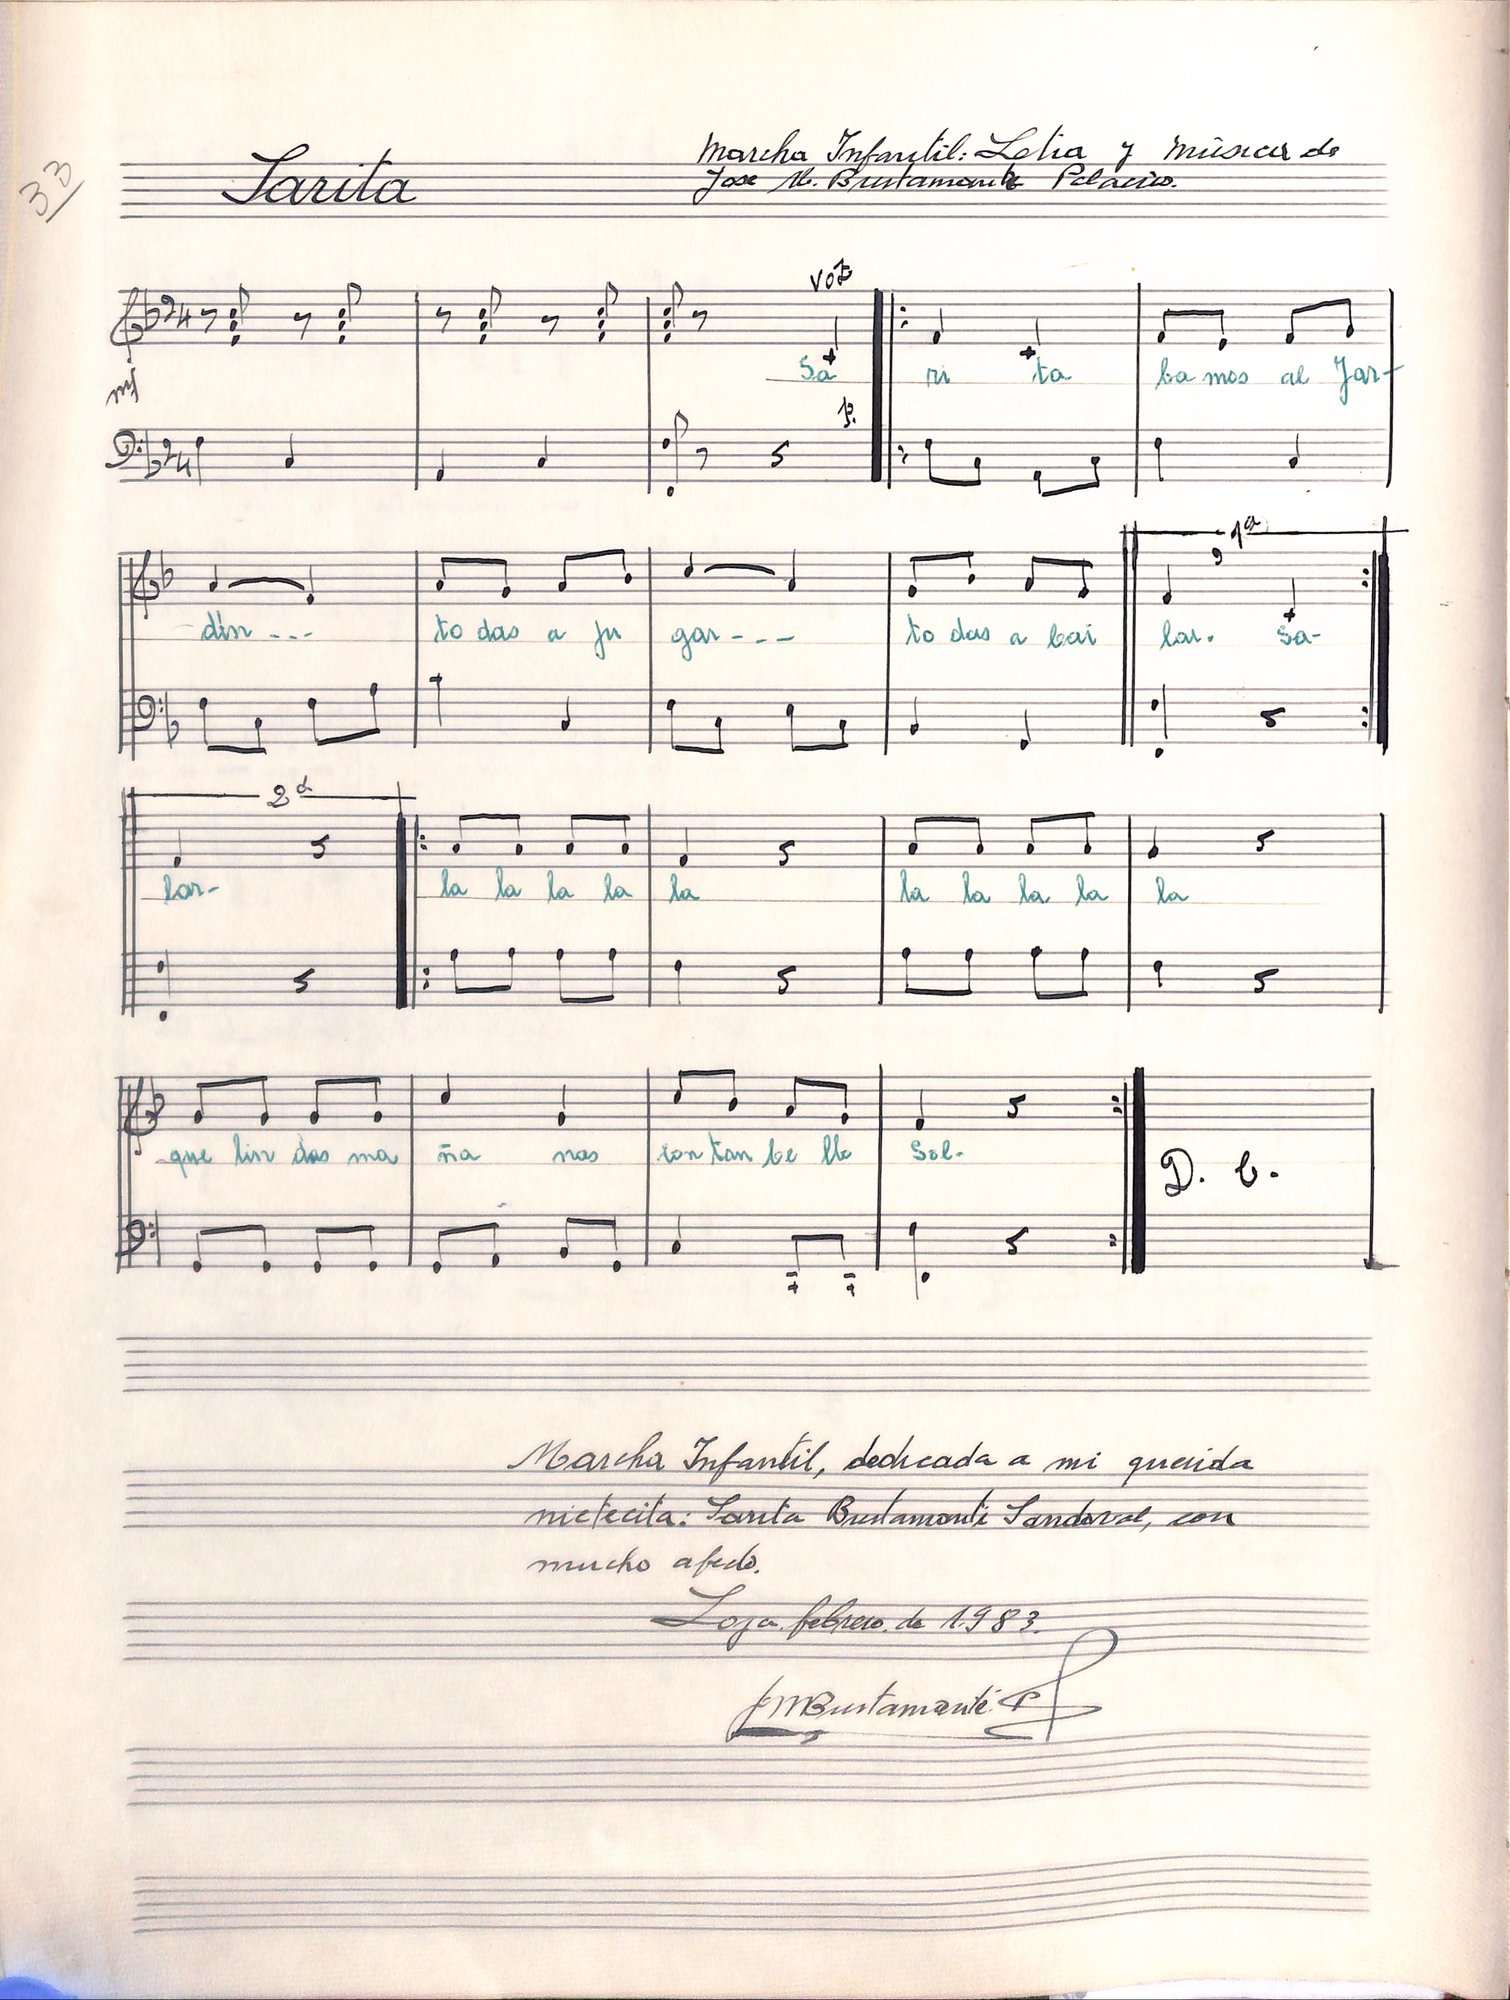 33
Sarita
Marcha Infantil: Letra y Música de
Jose M. Bustamante Palacios.
voz
mf
Sa ri ta ba mos al Jar-
p.
1a
din - - - to das a ju gar - - - to das a bai lar. Sa-
2a
lar- la la la la la la la la la la
que lin das ma ña nas con tan be llo Sol.
D. C.
Marcha Infantil, dedicada a mi querida
nietecita: Sarita Bustamante Sandoval, con
mucho afecto.
Loja febrero. de 1.983.
JMBustamante P